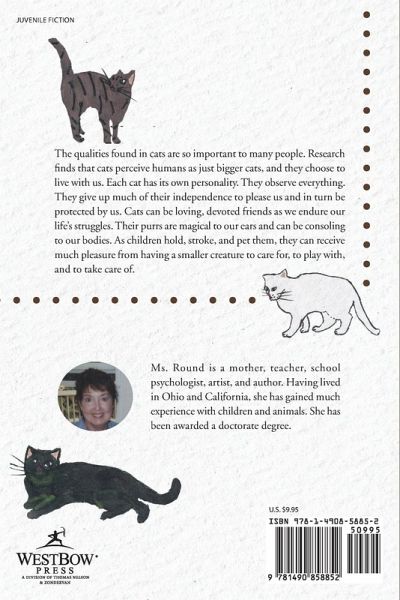 JUVENILE FICTION
The qualities found in cats are so important to many people. Research
finds that cats perceive humans as just bigger cats, and they choose to
live with us. Each cat has its own personality. They observe everything.
They give up much of their independence to please us and in turn be
protected by us. Cats can be loving, devoted friends as we endure our
life's struggles. Their purrs are magical to our ears and can be consoling
to our bodies. As children hold, stroke, and pet them, they can receive
much pleasure from having a smaller creature to care for, to play with,
and to take care of.
Ms. Round is a mother, teacher, school
psychologist, artist, and author. Having lived
in Ohio and California, she has gained much
experience with children and animals. She has
been awarded a doctorate degree.
U.S. $9.95
ISBN 978-1-4908-5885-2
50995
9 781490 858852
WESTBOW®
PRESS
A DIVISION OF THOMAS NELSON
& ZONDERVAN